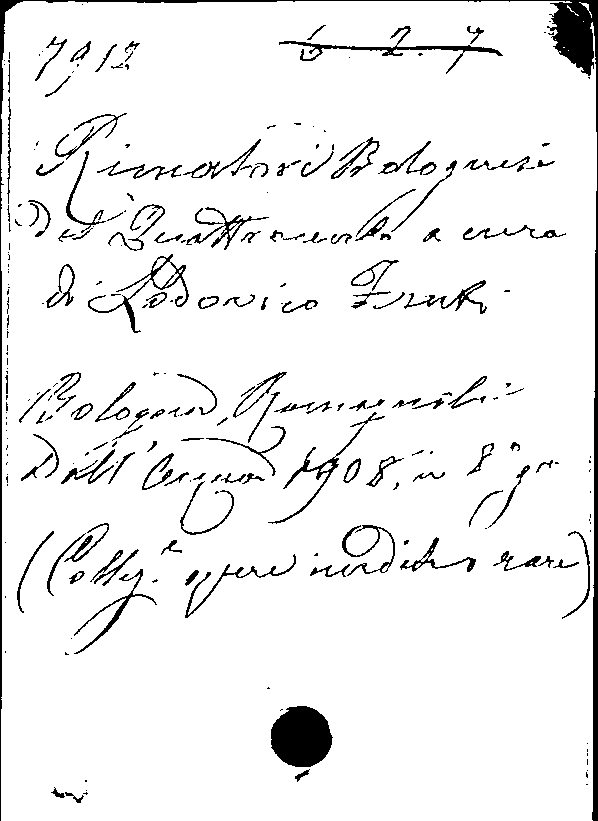 7912 6 2. 7
Rimatori Bolognesi
del Quattrocento a cura
di Lodovico Frati.
Bologna, Romagnoli-
Dall'Acqua 1908, in 8° gr
(Collez.e opere inedite o rare)